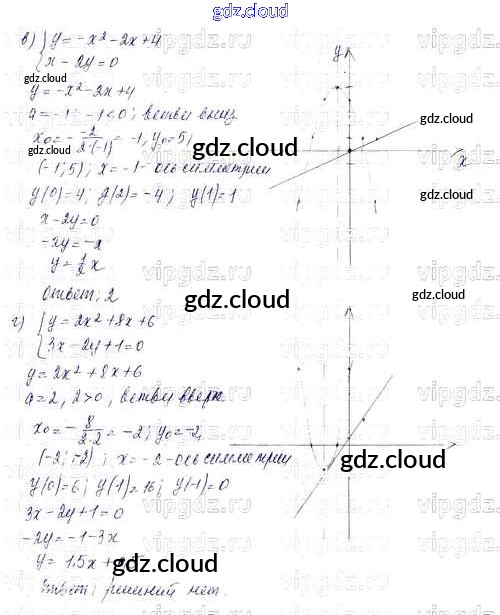 gdz.cloud
в) { y = -x² - 2x + 4
x - 2y = 0
gdz.cloud
y = -x² - 2x + 4
a = -1; -1 < 0; ветви вниз
gdz.cloud
x₀ = - -2/2·(-1) = -1, y₀ = 5,
gdz.cloud
(-1; 5); x = -1 - ось симметрии
y(0) = 4; y(2) = -4; y(1) = 1
gdz.cloud
x - 2y = 0
-2y = -x
y = 1/2 x
Ответ: 2
gdz.cloud
gdz.cloud
г) { y = 2x² + 8x + 6
3x - 2y + 1 = 0
y = 2x² + 8x + 6
gdz.cloud
a = 2, 2 > 0, ветви вверх
x₀ = - 8/2·2 = -2; y₀ = -2,
(-2; -2); x = -2 - ось симметрии
gdz.cloud
y(0) = 6; y(1) = 16; y(-1) = 0
3x - 2y + 1 = 0
-2y = -1 - 3x
y = 1,5x +
gdz.cloud
Ответ: решений нет.
gdz.cloud
y
x
vipgdz.ru